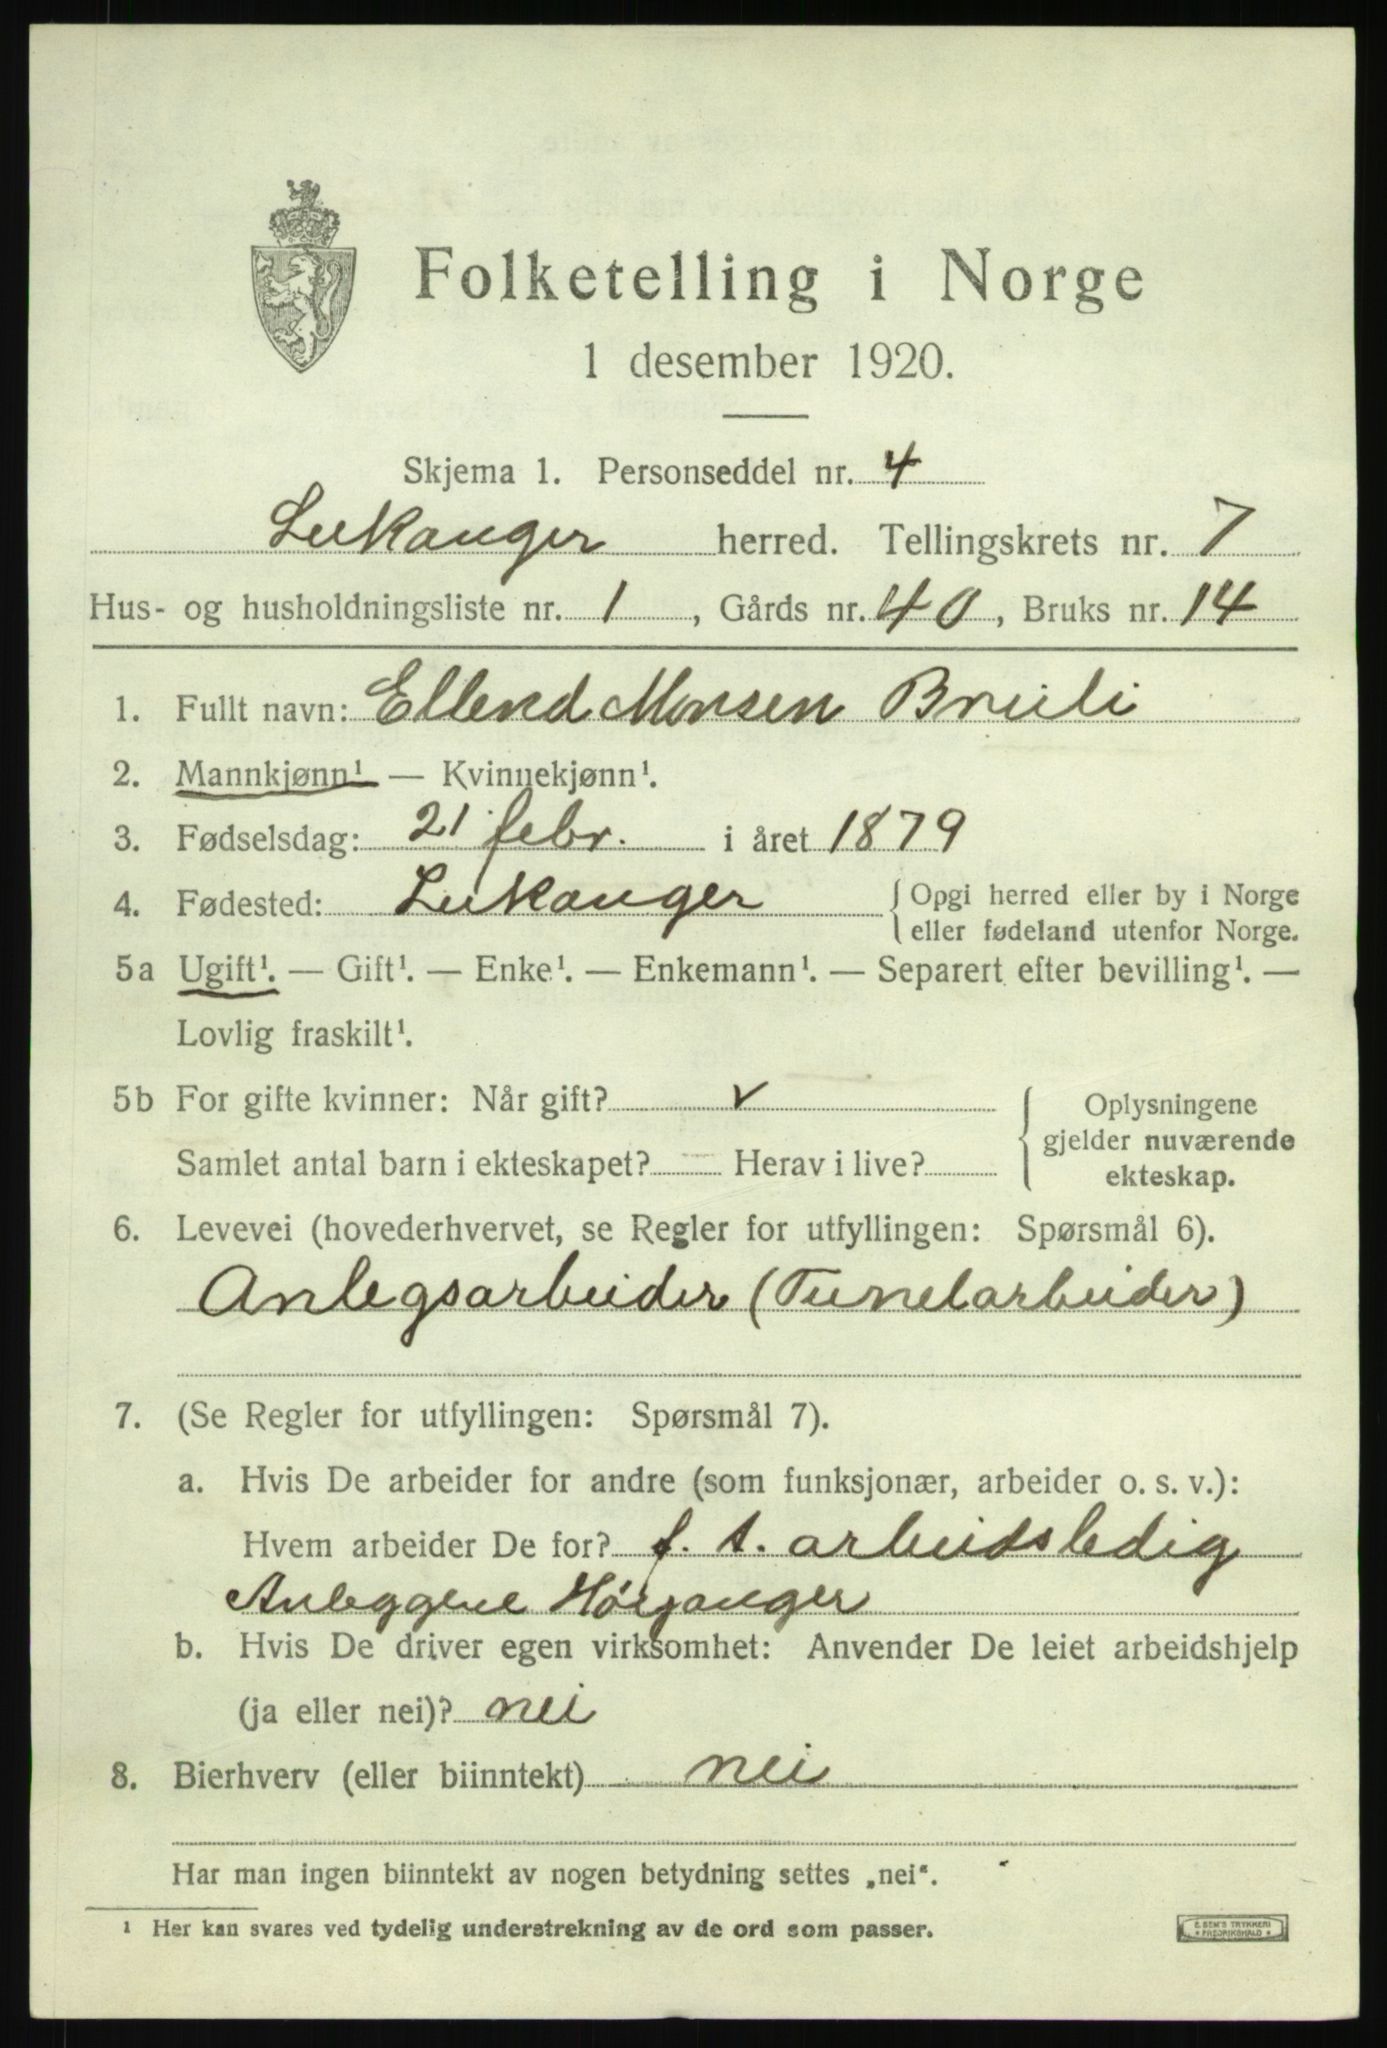 Folketelling i Norge
1 desember 1920.
Skjema 1. Personseddel nr. 4
Leikanger herred. Tellingskrets nr. 7
Hus- og husholdningsliste nr. 1, Gårds nr. 40, Bruks nr. 14
1. Fullt navn: Ellend Monsen Breili
2. Mannkjønn¹ — Kvinnekjønn¹.
3. Fødselsdag: 21 febr. i året 1879
4. Fødested: Leikanger { Opgi herred eller by i Norge
eller fødeland utenfor Norge.
5a Ugift¹. — Gift¹. — Enke¹. — Enkemann¹. — Separert efter bevilling¹. —
Lovlig fraskilt¹.
5b For gifte kvinner: Når gift? v { Oplysningene
gjelder nuværende
Samlet antal barn i ekteskapet? — Herav i live?
ekteskap.
6. Levevei (hovederhvervet, se Regler for utfyllingen: Spørsmål 6).
Anlegsarbeider (Tunelarbeider)
7. (Se Regler for utfyllingen: Spørsmål 7).
a. Hvis De arbeider for andre (som funksjonær, arbeider o. s. v.):
Hvem arbeider De for? f. t. arbeidsledig
Anleggene Høyanger
b. Hvis De driver egen virksomhet: Anvender De leiet arbeidshjelp
(ja eller nei)? nei
8. Bierhverv (eller biinntekt) nei
Har man ingen biinntekt av nogen betydning settes „nei“.
¹ Her kan svares ved tydelig understrekning av de ord som passer.
E. SEM'S TRYKKERI
* FREDRIKSHALD *